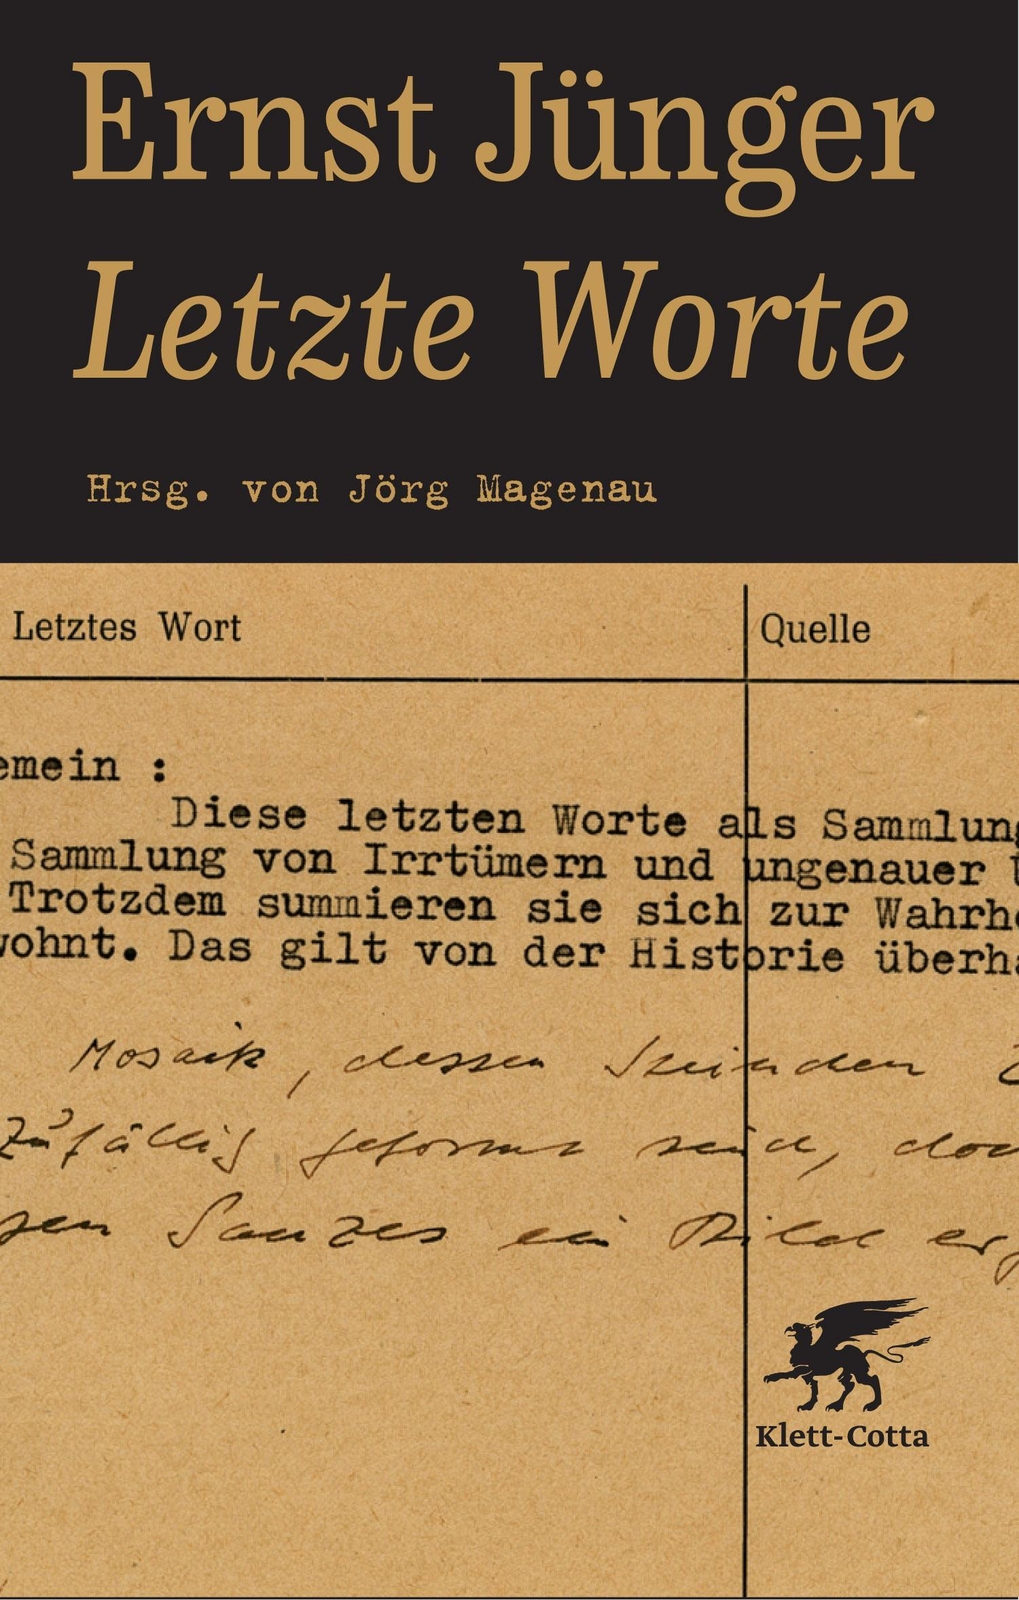 Ernst Jünger
Letzte Worte
Hrsg. von Jörg Magenau
Letztes Wort
Quelle
emein :
Diese letzten Worte als Sammlung
Sammlung von Irrtümern und ungenauer
Trotzdem summieren sie sich zur Wahrhe
wohnt. Das gilt von der Historie überha
Mosaik, dessen
Zufällig geformt sind, doc
gen Ganzes ein Bild erg
Klett-Cotta